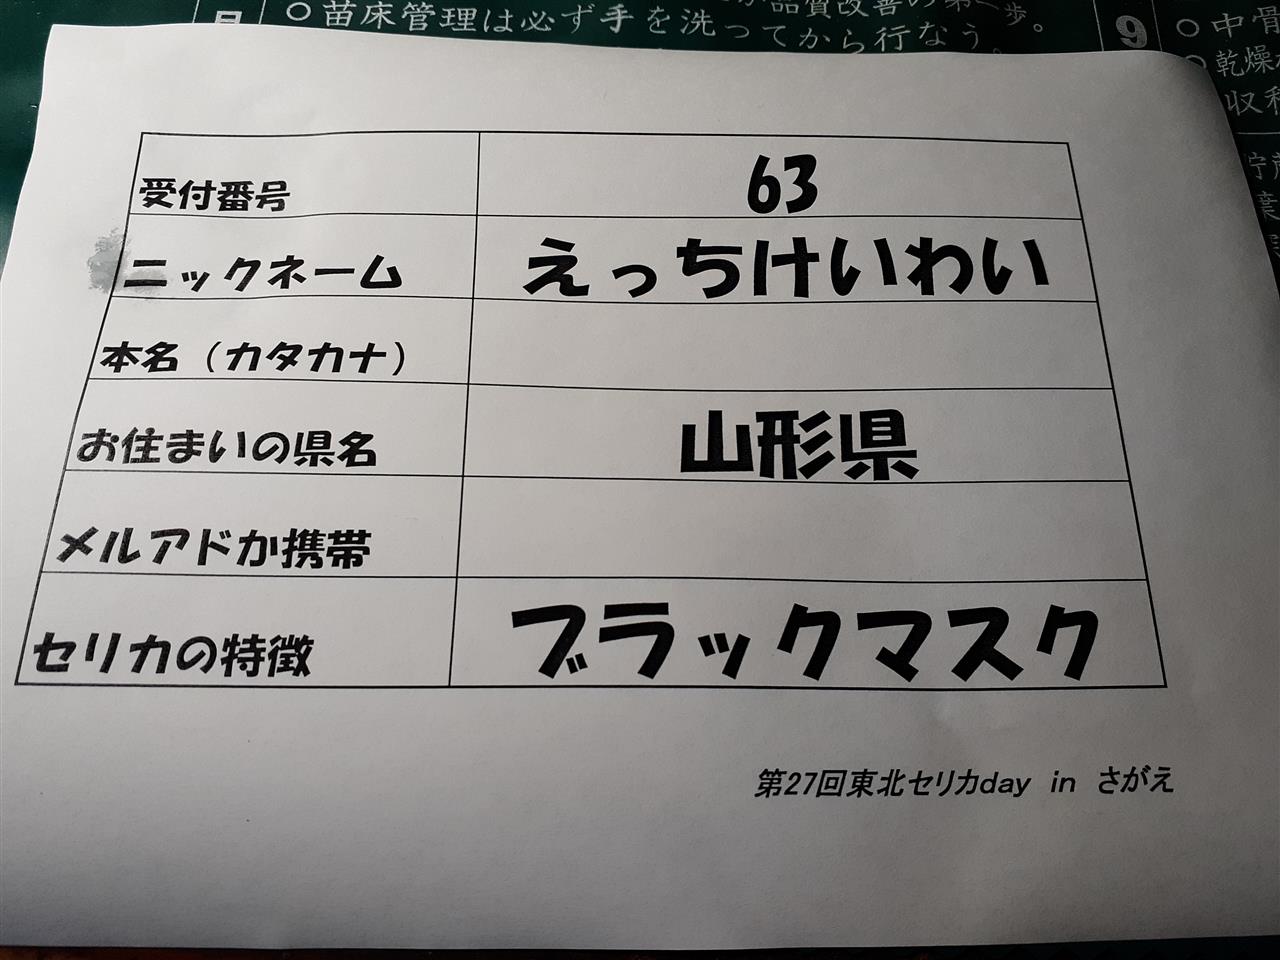 ○ 苗床管理は必ず手を洗ってから行なう。
9
○ 中骨
○ 乾燥
収
受付番号 63
ニックネーム えっちけいわい
本名（カタカナ）
お住まいの県名 山形県
メルアドか携帯
セリカの特徴 ブラックマスク
第27回東北セリカday in さがえ